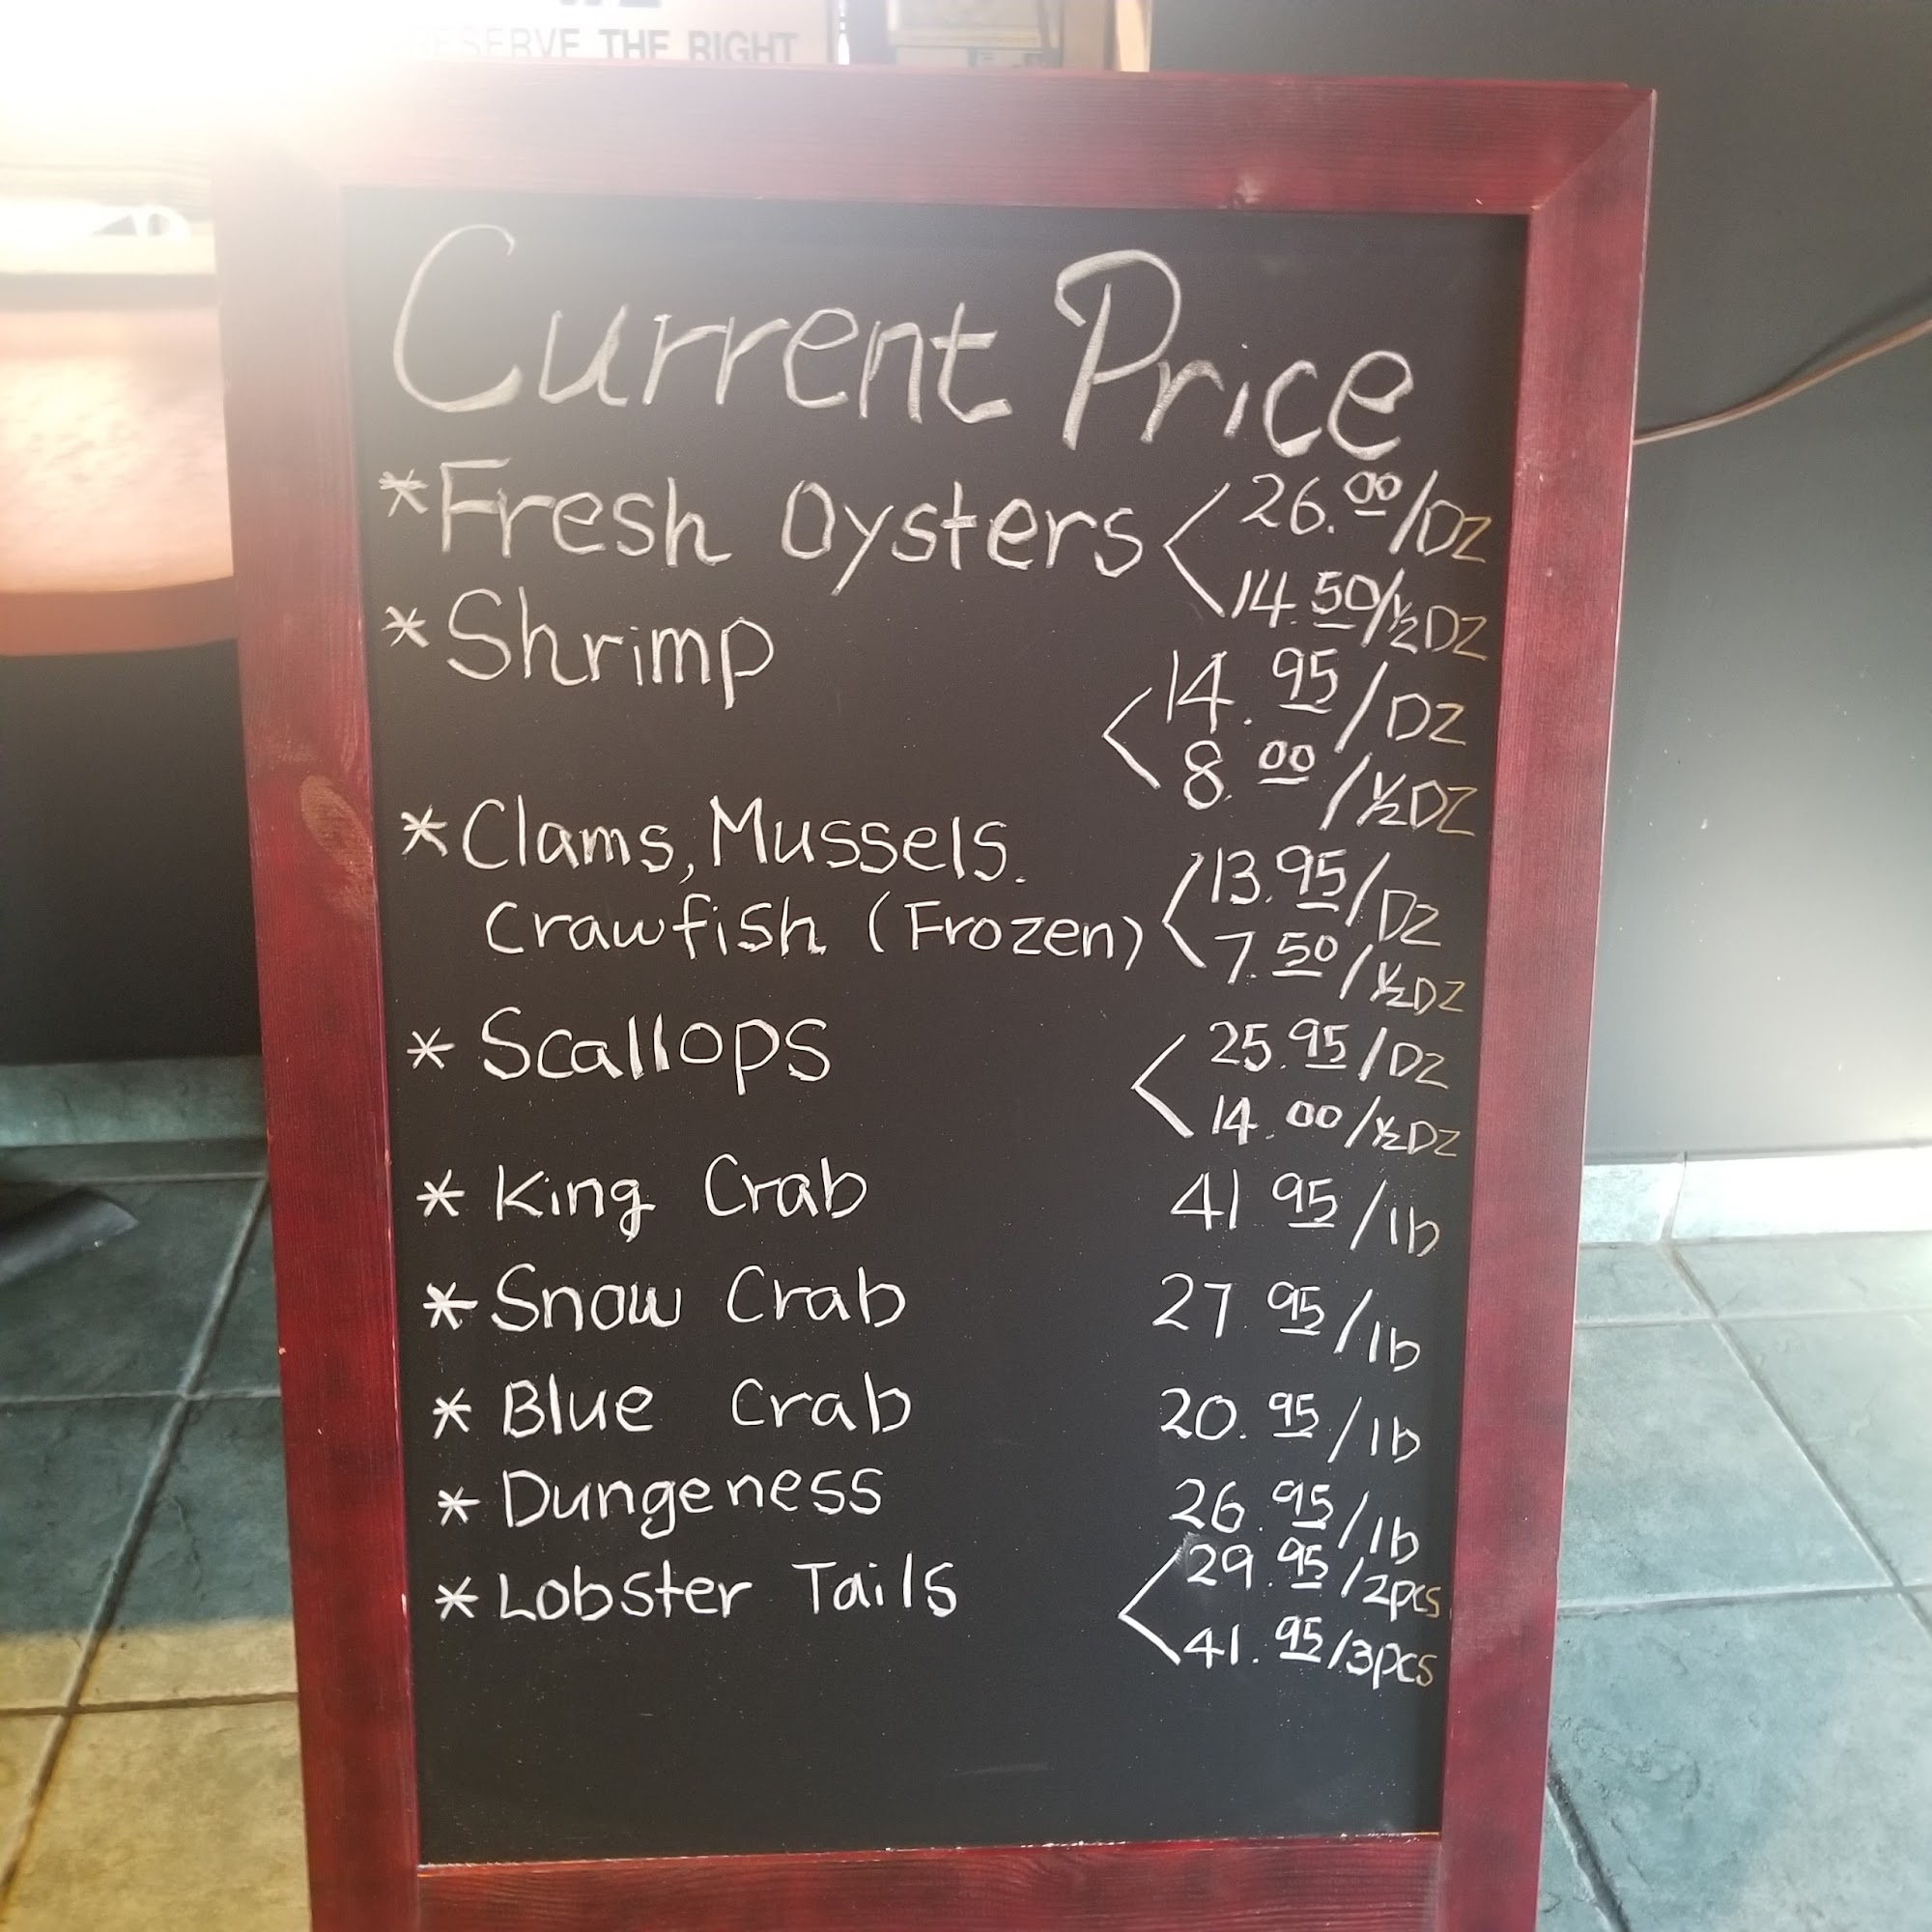 RESERVE THE RIGHT
Current Price
*Fresh Oysters < 26.00/DZ
14.50/½DZ
*Shrimp
< 14.95/DZ
8.00/½DZ
*Clams, Mussels.
Crawfish (Frozen) < 13.95/DZ
7.50/½DZ
* Scallops < 25.95/DZ
14.00/½DZ
* King Crab 41 95/lb
* Snow Crab 27 95/lb
* Blue Crab 20.95/lb
* Dungeness 26.95/lb
* Lobster Tails < 29.95/2pcs
41.95/3pcs